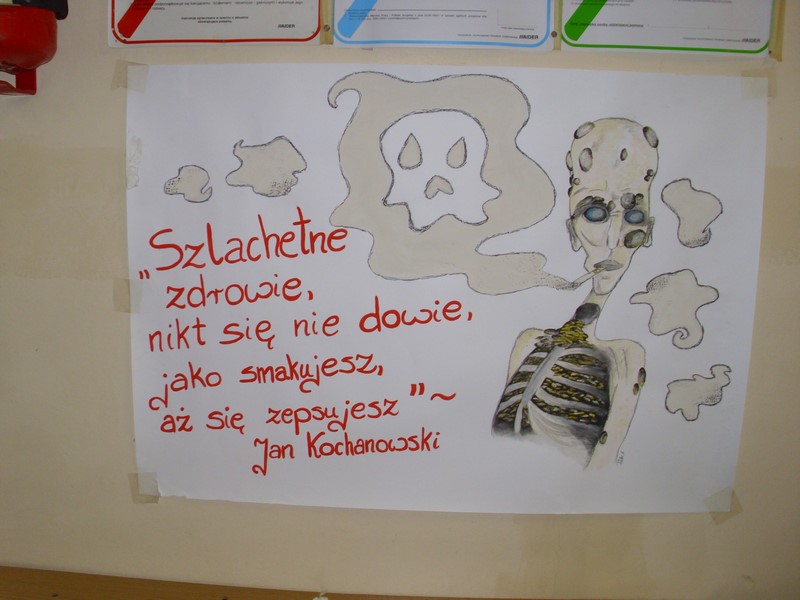 „Szlachetne
zdrowie,
nikt się nie dowie,
jako smakujesz,
aż się zepsujesz" ~
Jan Kochanowski